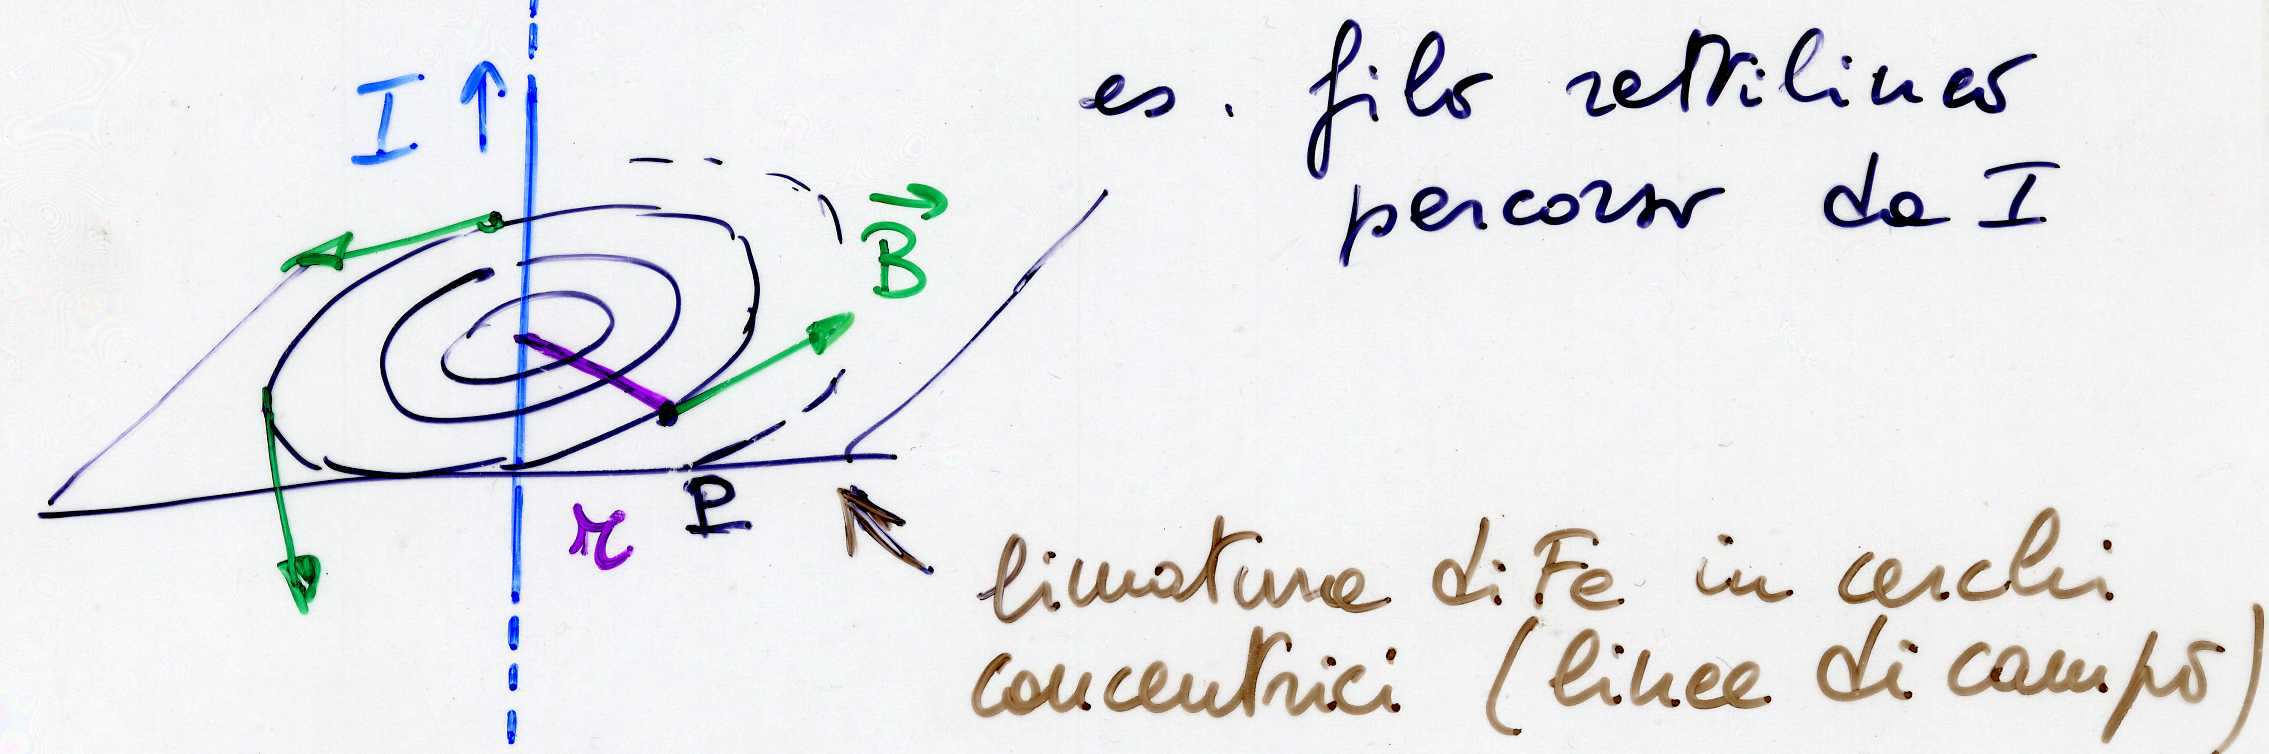 es. filo rettilineo
percorso da I
I
B
r
P
limatura di Fe in cerchi
concentrici (linee di campo)